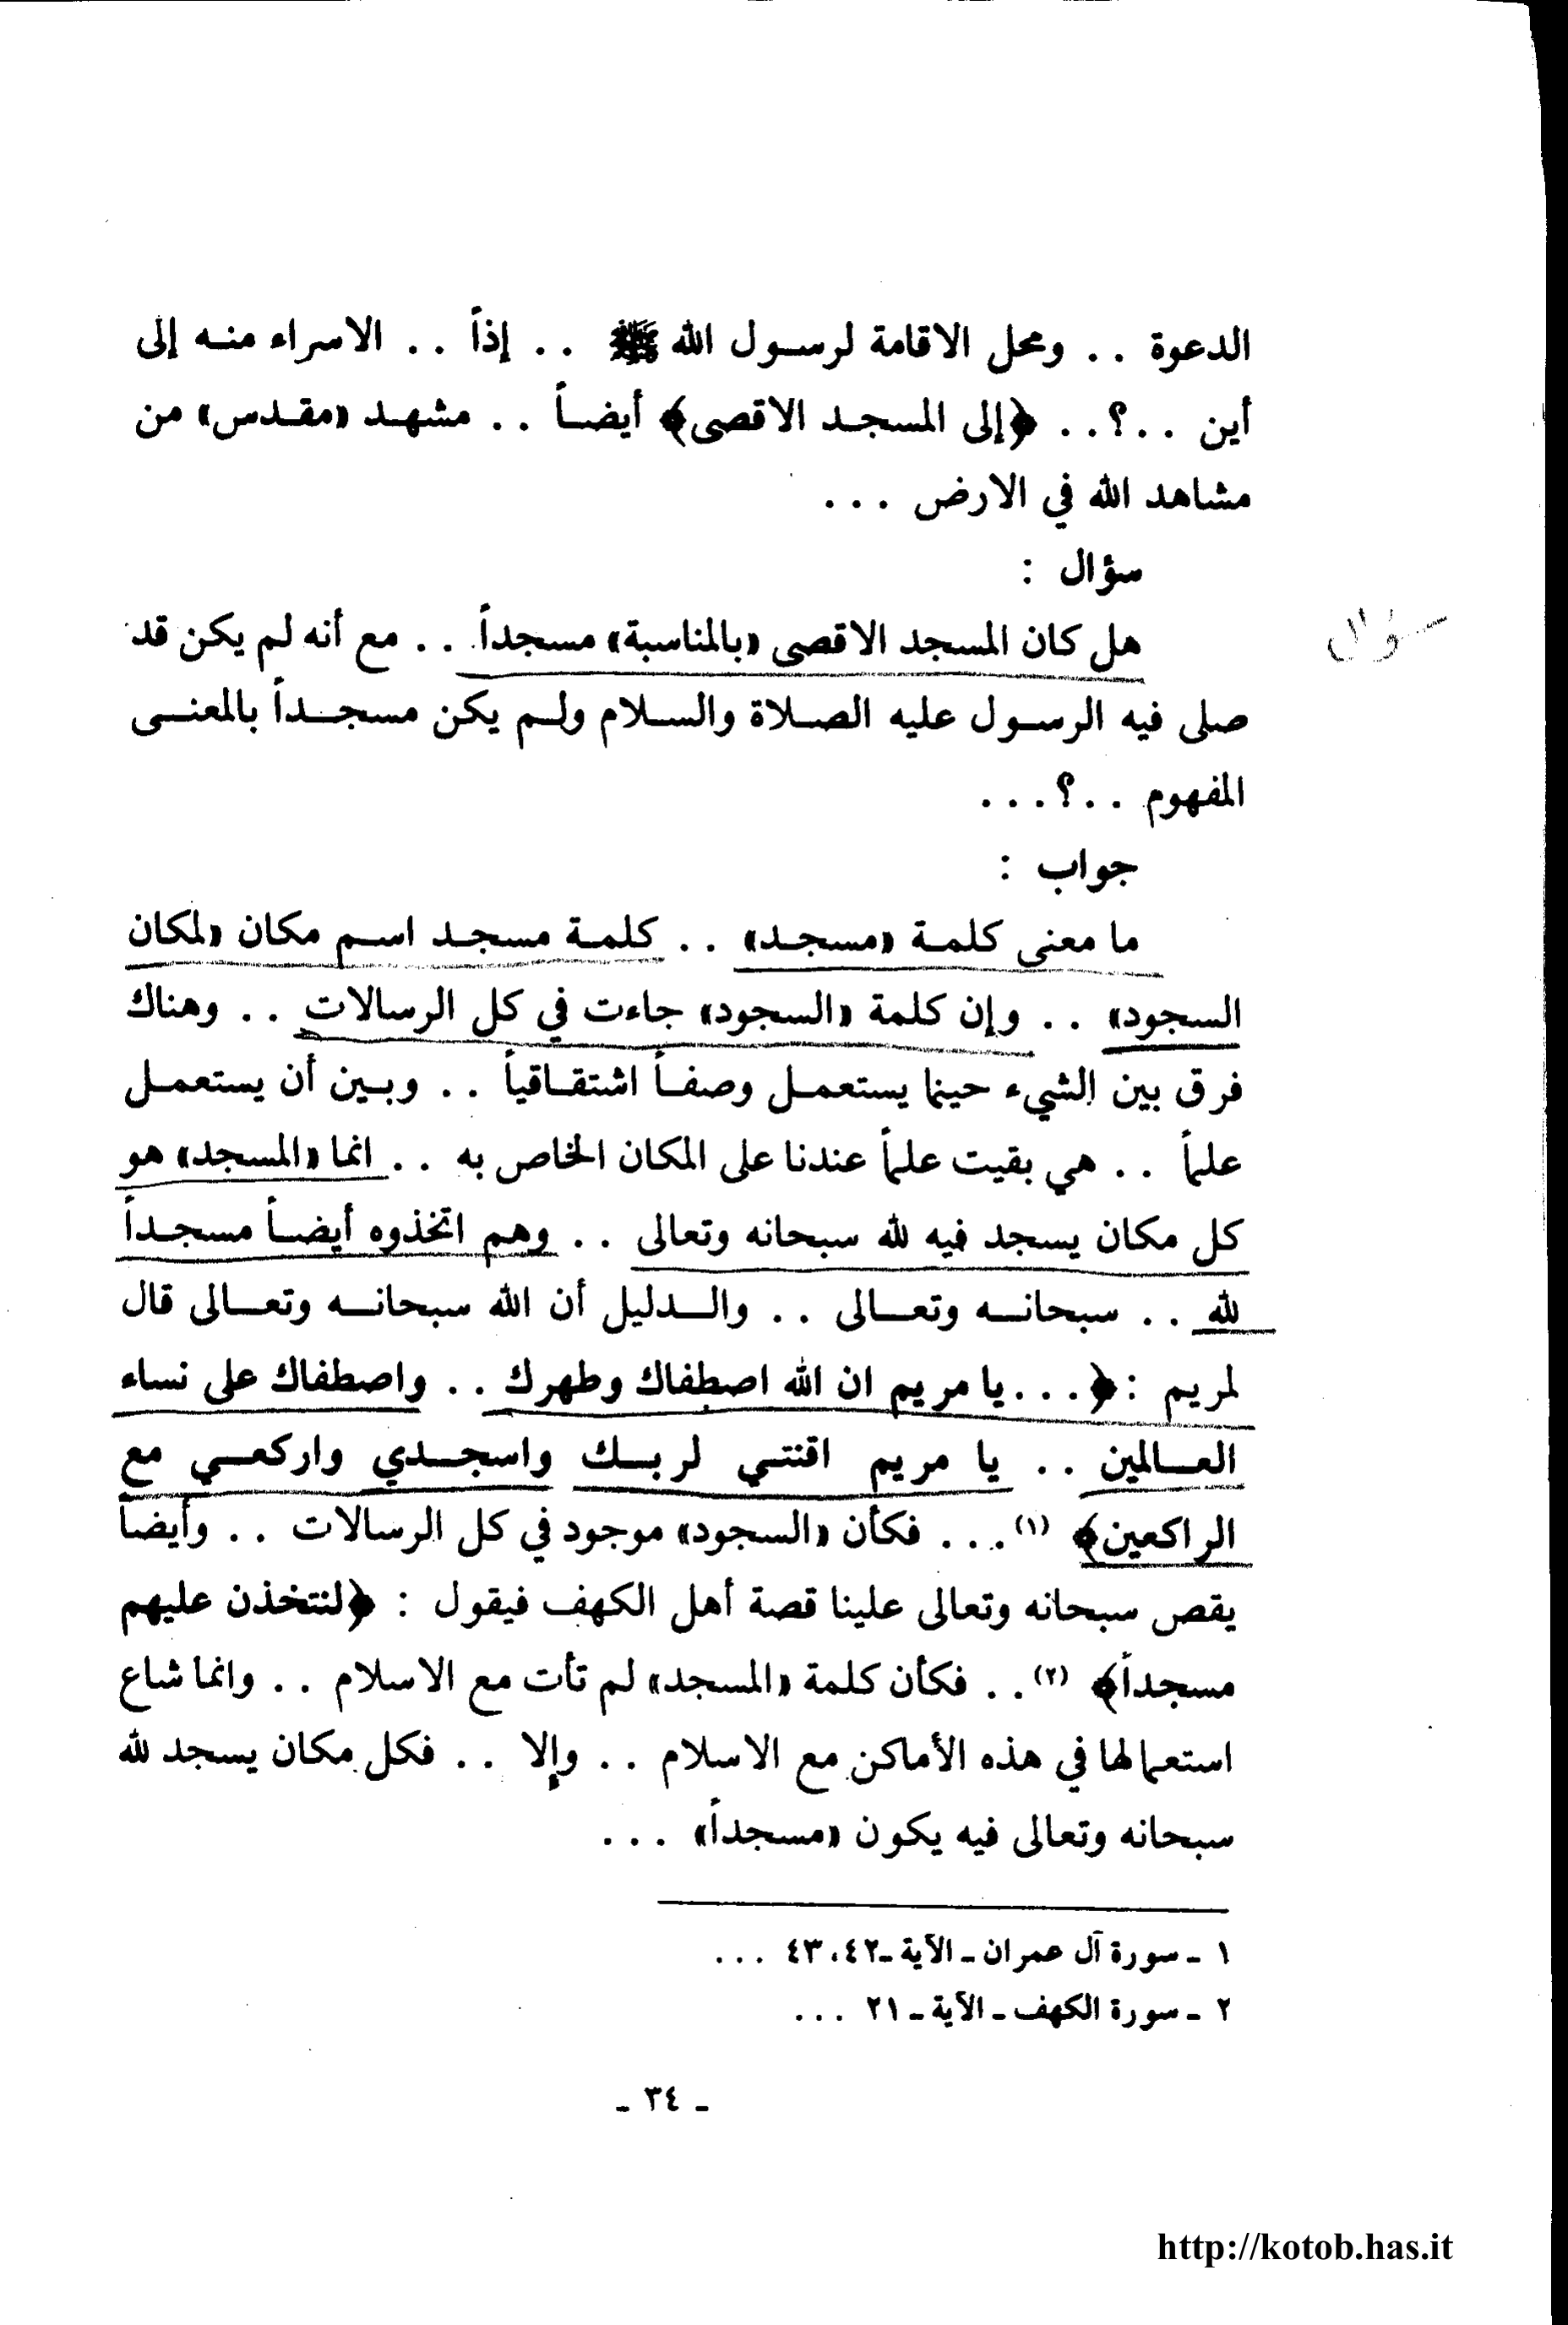 الدعوة . . ومحل الاقامة لرسول الله ﷺ . . إذاً . . الاسراء منه إلى
أين . .؟. . ﴿إلى المسجد الاقصى﴾ أيضاً . . مشهد «مقدس» من
مشاهد الله في الارض . . .
سؤال :
سؤال
هل كان المسجد الاقصى «بالمناسبة» مسجداً . . مع أنه لم يكن قد
صلى فيه الرسول عليه الصلاة والسلام ولم يكن مسجداً بالمعنى
المفهوم . .؟. . .
جواب :
ما معنى كلمة «مسجد» . . كلمة مسجد اسم مكان «لمكان
السجود» . . وإن كلمة «السجود» جاءت في كل الرسالات . . وهناك
فرق بين الشيء حينما يستعمل وصفاً اشتقاقياً . . وبين أن يستعمل
علماً . . هي بقيت علماً عندنا على المكان الخاص به . . انما «المسجد» هو
كل مكان يسجد فيه لله سبحانه وتعالى . . وهم اتخذوه أيضاً مسجداً
لله . . سبحانه وتعالى . . والدليل أن الله سبحانه وتعالى قال
لمريم : ﴿. . . يا مريم ان الله اصطفاك وطهرك . . واصطفاك على نساء
العالمين . . يا مريم اقنتي لربك واسجدي واركعي مع
الراكعين﴾ (١). . . فكأن «السجود» موجود في كل الرسالات . . وأيضاً
يقص سبحانه وتعالى علينا قصة أهل الكهف فيقول : ﴿لنتخذن عليهم
مسجداً﴾ (٢). . فكأن كلمة «المسجد» لم تأت مع الاسلام . . وانما شاع
استعمالها في هذه الأماكن مع الاسلام . . وإلا . . فكل مكان يسجد لله
سبحانه وتعالى فيه يكون «مسجداً» . . .
١ ـ سورة آل عمران ـ الآية ـ٤٢، ٤٣ . . .
٢ ـ سورة الكهف ـ الآية ـ ٢١ . . .
ـ ٣٤ ـ
http://kotob.has.it